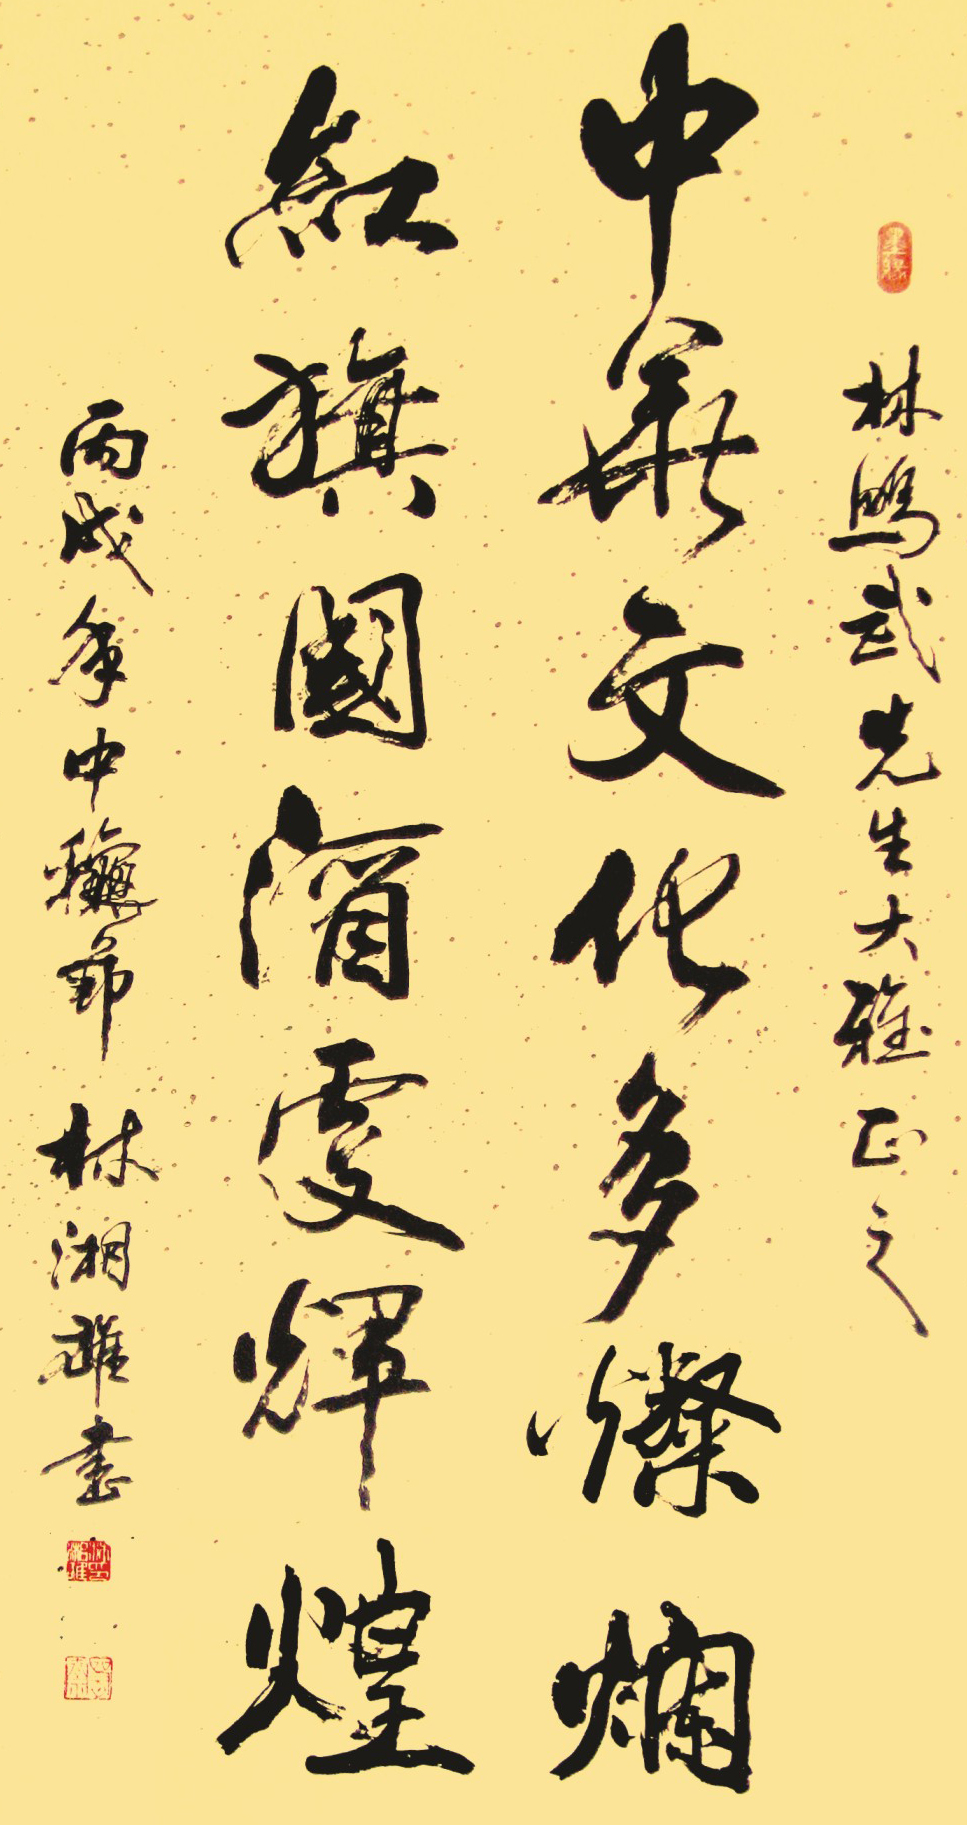 林武先生大雅正之
中華文化多燦爛
紅旗國酒更輝煌
丙戌年中龝節 林湘雄書